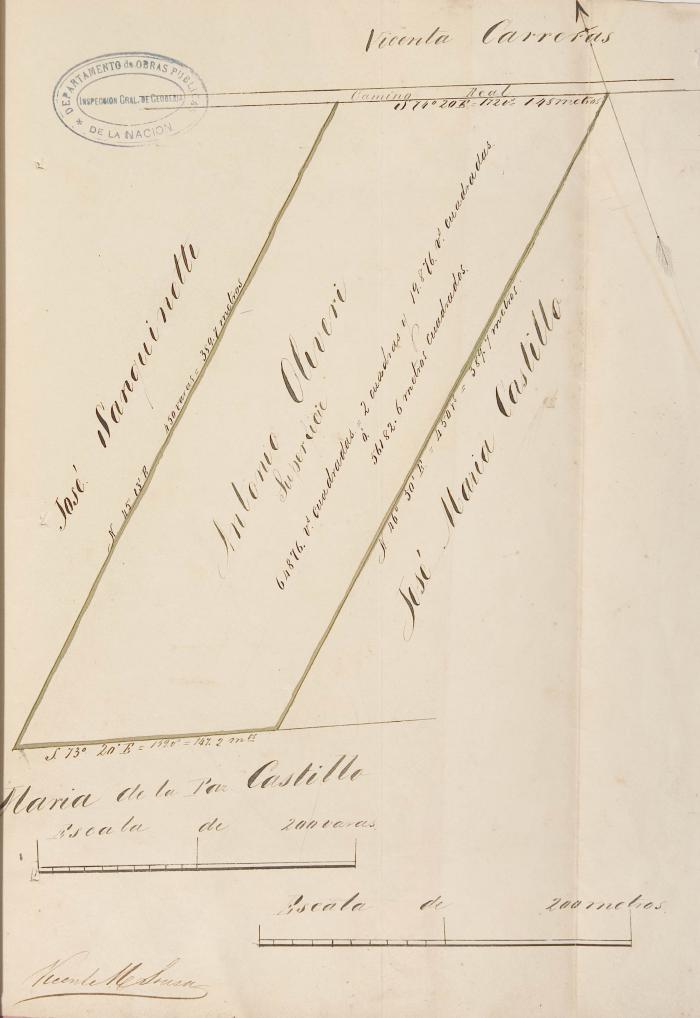 Vicenta Carreras
DEPARTAMENTO de OBRAS PUBLICAS
INSPECCION GRAL. DE GEODESIA
* DE LA NACION
Camino Real
S 74º 20' E = 172 vs 148 metros
José Sanguinetti
N 45º 15' E 450 varas = 389.7 metros
Antonio Oliveri
Superficie
64876. vs cuadradas = 2 cuadras y 19,876. vs cuadradas.
à
56182.6 metros cuadrados.
N 46º 30' E = 450 vs = 389.7 metros.
José Maria Castillo
S. 73º 20' E = = 147.2 mts
Maria de la Paz Castillo
Escala de 200 varas
Escala de 200 metros
Vicente M Sousa